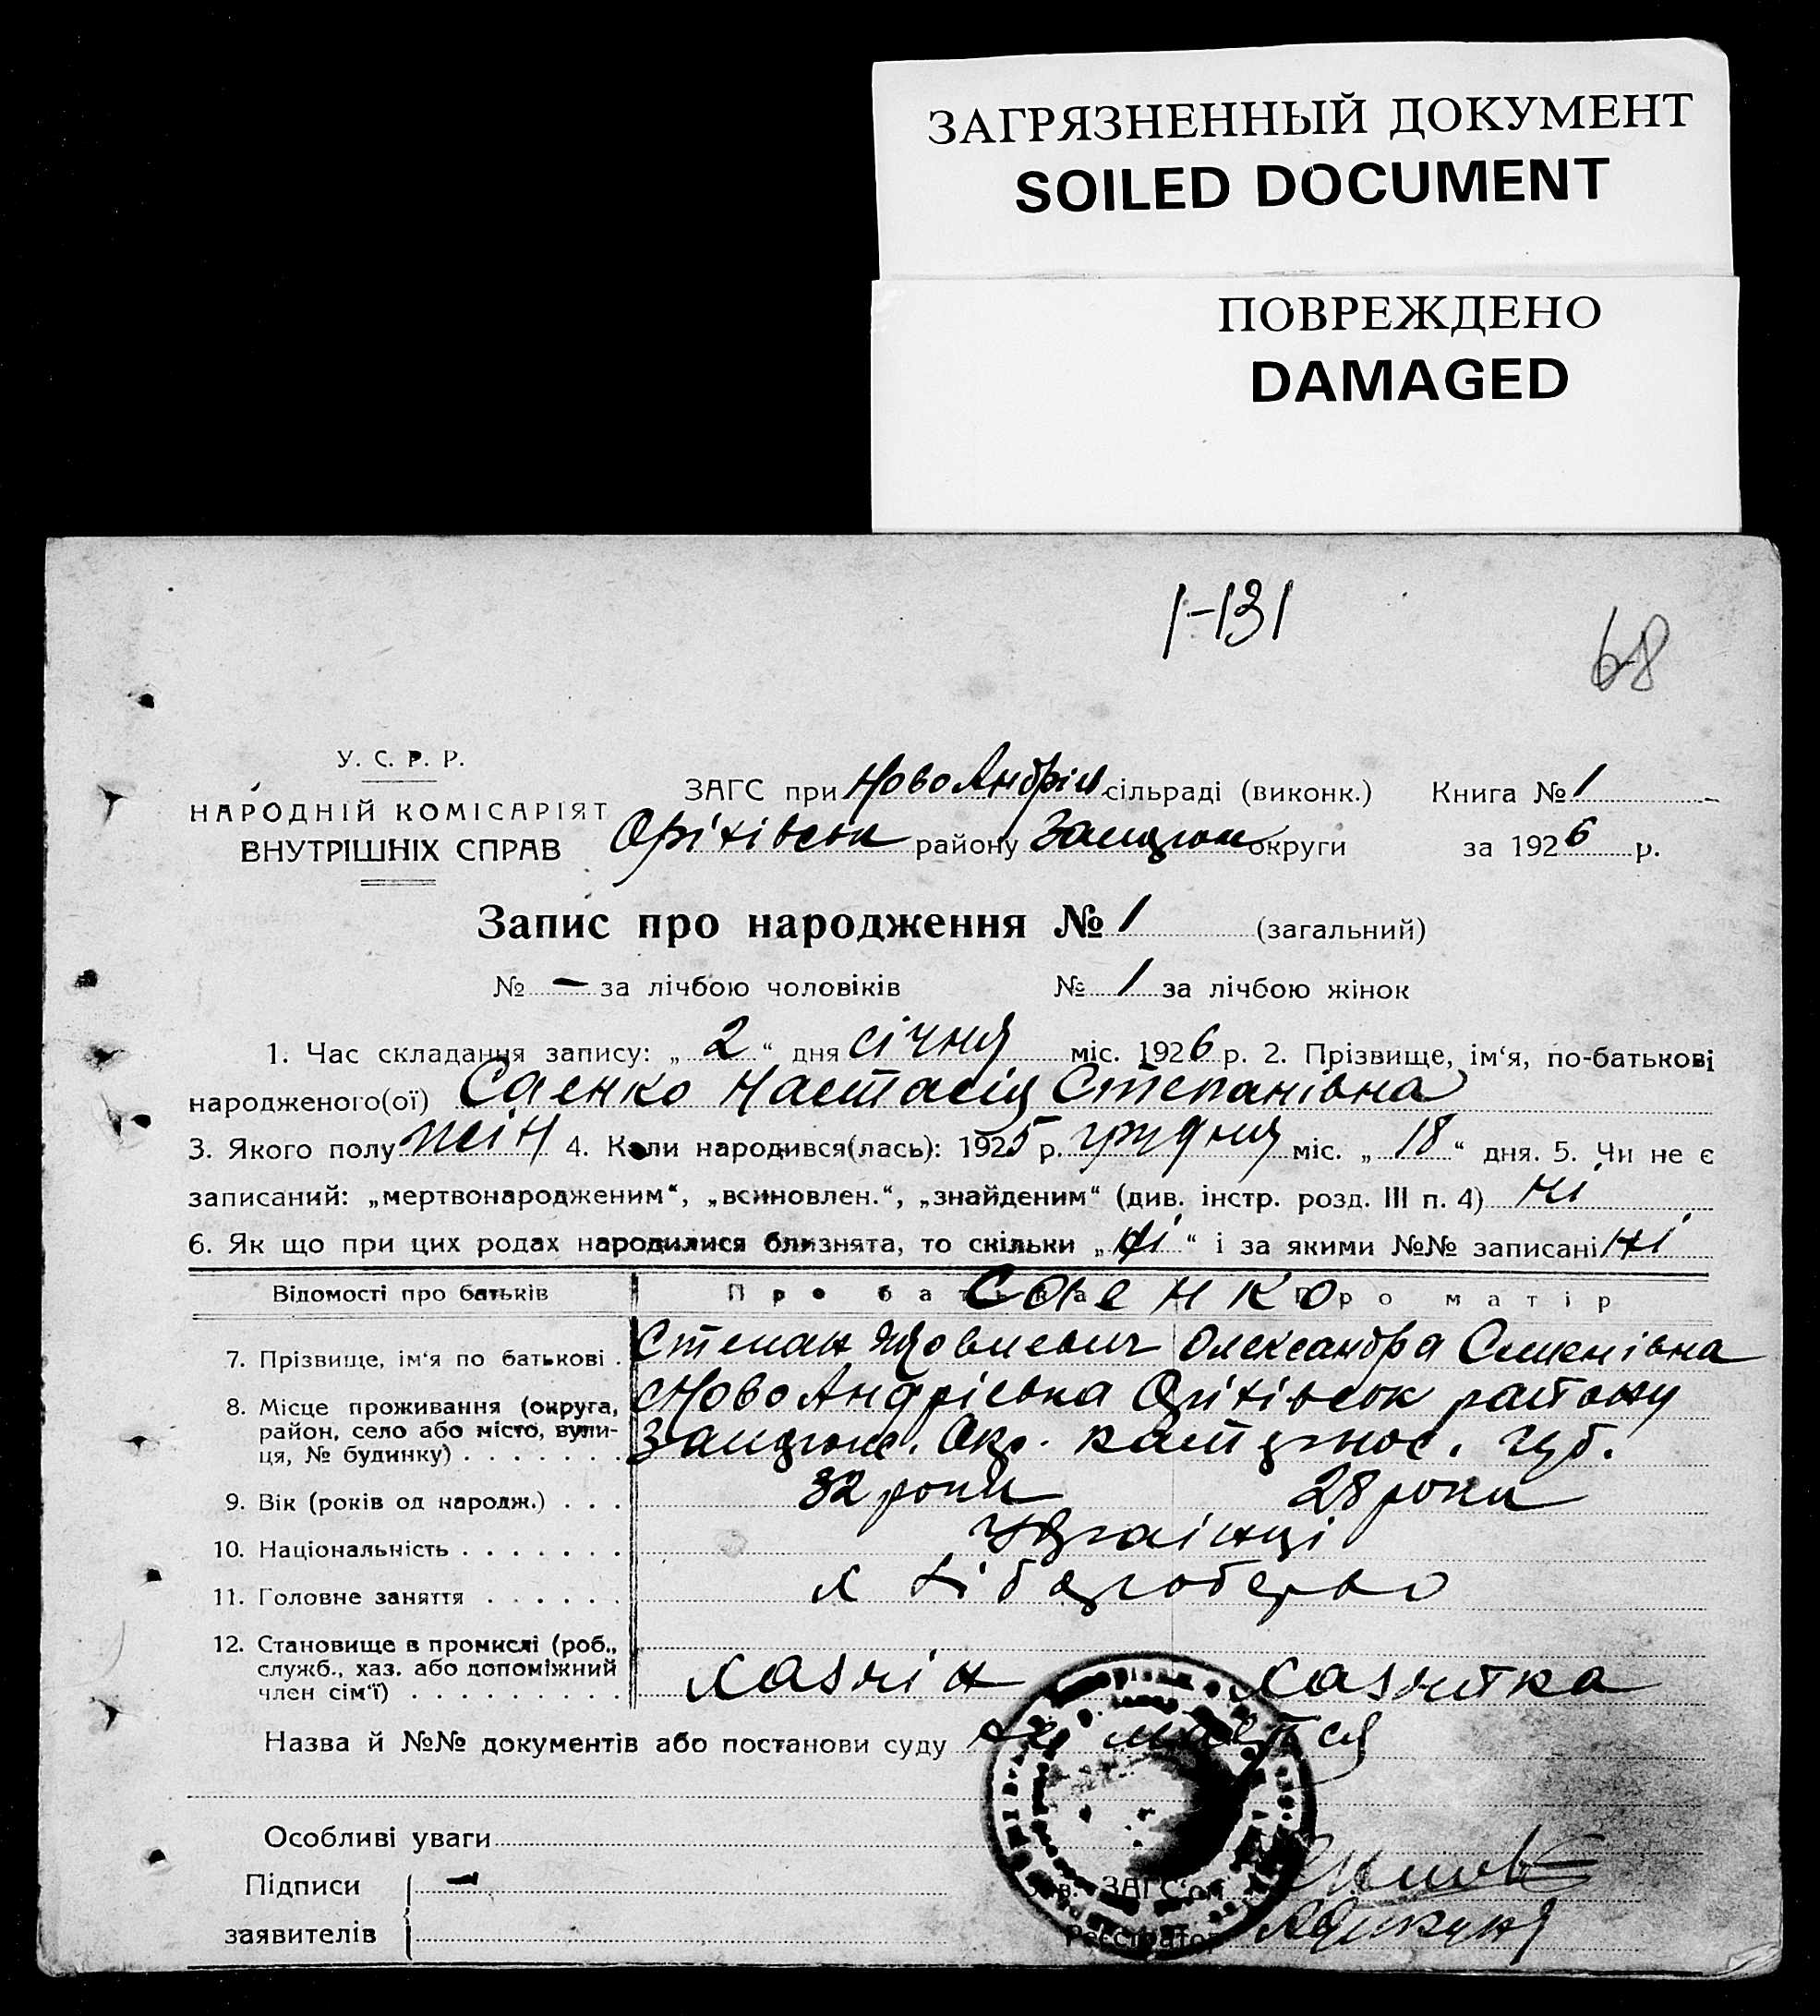 ЗАГРЯЗНЕННЫЙ ДОКУМЕНТ
SOILED DOCUMENT
ПОВРЕЖДЕНО
DAMAGED
1-131
68
У. С. Р. Р.
НАРОДНІЙ КОМІСАРІЯТ
ВНУТРІШНІХ СПРАВ
ЗАГС при Ново Андрїв сільраді (виконк.) Книга № 1
Оріхівськ району Запоріж округи за 1926 р.
Запис про народження № 1 (загальний)
№ — за лічбою чоловіків № 1 за лічбою жінок
1. Час складання запису: „ 2 “ дня січня міс. 1926 р. 2. Прізвище, ім‘я, по-батькові
народженого(ої) Саєнко Настасія Степанівна
3. Якого полу жін 4. Коли народився(лась): 1925 р. грудня міс. „ 18 “ дня. 5. Чи не є
записаний: „мертвонародженим“, „всиновлен.“, „знайденим“ (див. інстр. розд. III п. 4) ні
6. Як що при цих родах народилися близнята, то скільки „ ні “ і за якими №№ записані ні
Відомості про батьків Про батька Про матір
Саенко
7. Прізвище, ім‘я по батькові . Степан Олександра
8. Місце проживання (округа, район, село або місто, вули-ця, № будинку) . . . . . . . Ново Андрієвка Оріхівськ району
Окр. губ.
9. Вік (років од народж.) . . . 32 роки 28 роки
10. Національність . . . . . . . Українці
11. Головне заняття . . . . . . хліборобство
12. Становище в промислі (роб., служб., хаз. або допоміжний член сім‘ї) . . . . . . . . . хазяїн хазяйка
Назва й №№ документів або постанови суду не мається
Особливі уваги
Підписи —
заявителів
Зав. ЗАГС‘ом
Реєстратор